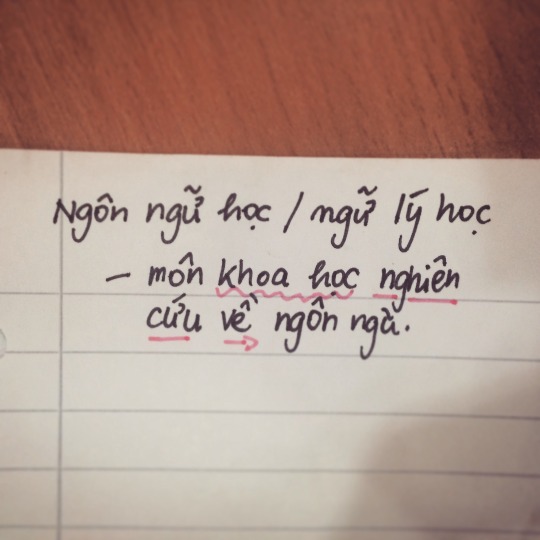 Ngôn ngữ học / ngữ lý học
– môn khoa học nghiên
cứu về ngôn ngữ.